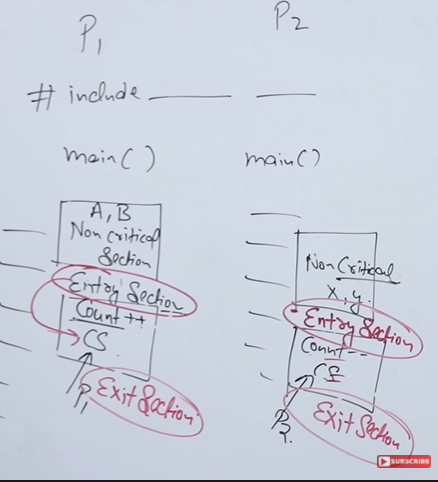 P1
P2
# include
main()
main()
A, B
Non critical
Section
Entry Section
Count ++
CS
P1
Exit Section
Non Critical
x, y
Entry Section
Count --
CS
P2
Exit Section
SUBSCRIBE